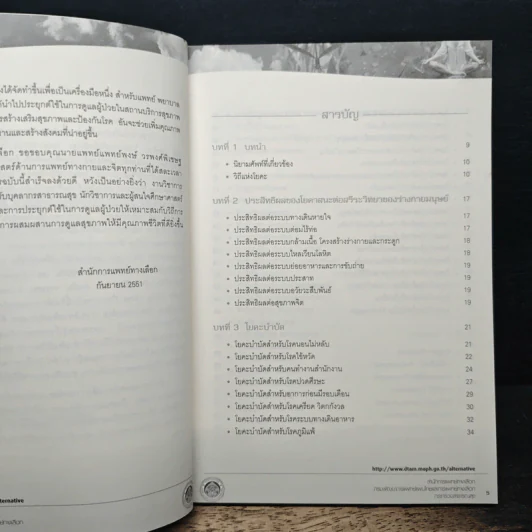 งได้จัดทำขึ้นเพื่อเป็นเครื่องมือหนึ่ง สำหรับแพทย์ พยาบาล
นำไปประยุกต์ใช้ในการดูแลผู้ป่วยในสถานบริการสุขภาพ
สร้างเสริมสุขภาพและป้องกันโรค อันจะช่วยเพิ่มคุณภาพ
านและสร้างสังคมที่น่าอยู่ขึ้น
ลือก ขอขอบคุณนายแพทย์แพทย์พงษ์ วรพงศ์พิเชษฐ
สตร์ด้านการแพทย์ทางกายและจิตทุกท่านที่ได้สละเวลา
ฉบับนี้สำเร็จลงด้วยดี หวังเป็นอย่างยิ่งว่า งานวิชาการ
รับบุคลากรสาธารณสุข นักวิชาการและผู้สนใจศึกษาศาสตร์
และการประยุกต์ใช้ในการดูแลผู้ป่วยให้เหมาะสมกับวิถีการ
การผสมผสานการดูแลสุขภาพให้มีคุณภาพชีวิตที่ดียิ่งขึ้น
สำนักการแพทย์ทางเลือก
กันยายน 2551
ernative
สารบัญ
บทที่ 1 บทนำ 9
• นิยามศัพท์ที่เกี่ยวข้อง 10
• วิถีแห่งโยคะ 10
บทที่ 2 ประสิทธิผลของโยคาสนะต่อสรีระวิทยาของร่างกายมนุษย์ 17
• ประสิทธิผลต่อระบบทางเดินหายใจ 17
• ประสิทธิผลต่อระบบต่อมไร้ท่อ 17
• ประสิทธิผลต่อระบบกล้ามเนื้อ โครงสร้างร่างกายและกระดูก 18
• ประสิทธิผลต่อระบบไหลเวียนโลหิต 18
• ประสิทธิผลต่อระบบย่อยอาหารและการขับถ่าย 19
• ประสิทธิผลต่อระบบประสาท 19
• ประสิทธิผลต่อระบบอวัยวะสืบพันธุ์ 19
• ประสิทธิผลต่อสุขภาพจิต 19
บทที่ 3 โยคะบำบัด 21
• โยคะบำบัดสำหรับโรคนอนไม่หลับ 21
• โยคะบำบัดสำหรับโรคไข้หวัด 22
• โยคะบำบัดสำหรับคนทำงานสำนักงาน 24
• โยคะบำบัดสำหรับโรคปวดศีรษะ 27
• โยคะบำบัดสำหรับอาการก่อนมีรอบเดือน 29
• โยคะบำบัดสำหรับโรคเครียด วิตกกังวล 30
• โยคะบำบัดสำหรับโรคระบบทางเดินอาหาร 32
• โยคะบำบัดสำหรับโรคภูมิแพ้ 34
http://www.dtam.moph.go.th/alternative
สำนักการแพทย์ทางเลือก
กรมพัฒนาการแพทย์แผนไทยและการแพทย์ทางเลือก
กระทรวงสาธารณสุข
5